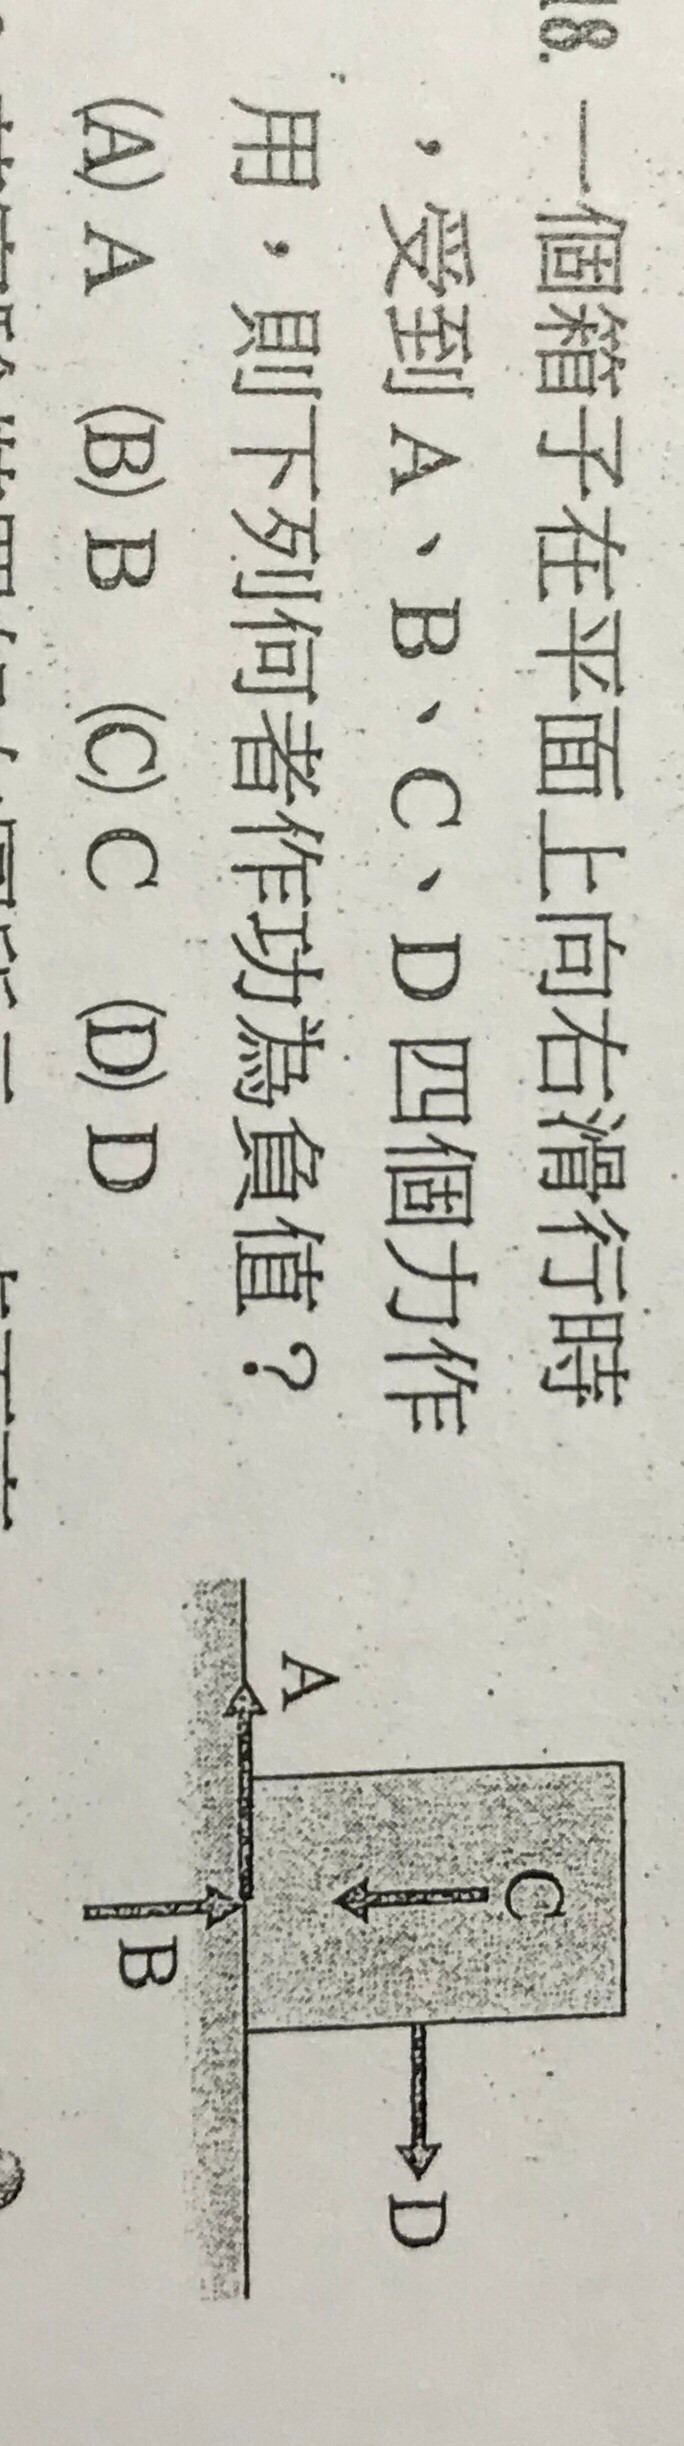 18. 一個箱子在平面上向右滑行時
，受到 A、B、C、D 四個力作
用，則下列何者作功為負值？
(A) A (B) B (C) C (D) D
A
B
C
D